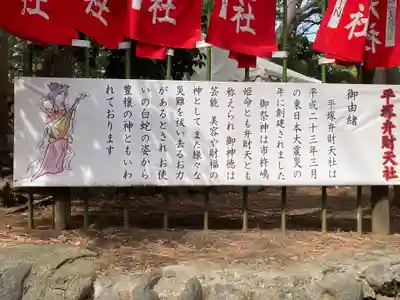 社
社
社
社
平塚弁財天社
御由緒
平塚弁財天社は
平成二十三年三月
の東日本大震災の
年に創建されました
御祭神は市杵嶋
姫命とも弁財天とも
称えられ 御神徳は
芸能 美容や財福の
神としてまた様々な
災難を祓い去るお力
があるとされ お使
いの白蛇の姿から
豊穣の神ともいわ
れております